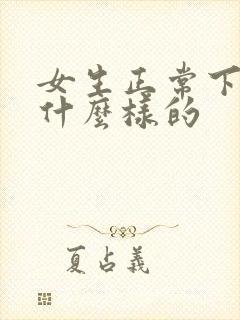 女生正常下
什麼樣的
夏占義